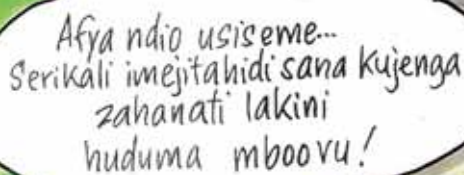 Afya ndio usiseme...
Serikali imejitahidi sana kujenga
zahanati lakini
huduma mboovu!